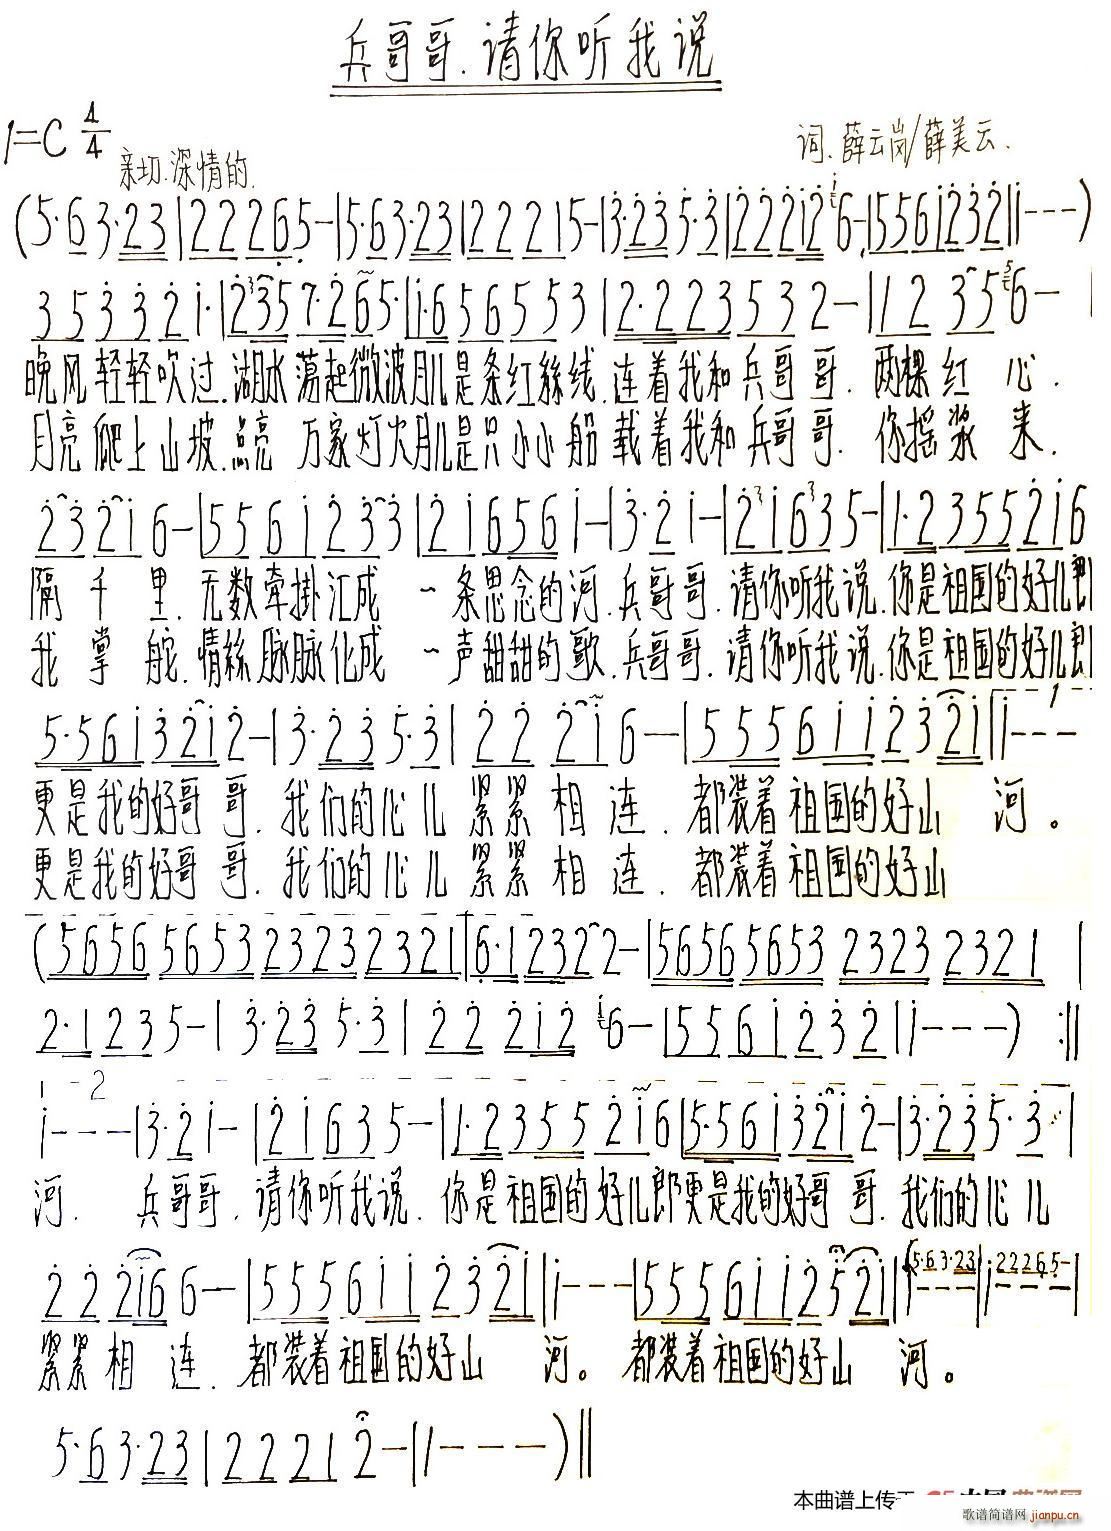 兵哥哥.请你听我说
1=C 4/4
词.薛云岗/薛美云.
亲切.深情的.
(5·6 3·23|2 2 2 6 5-|5·6 3·23|2 2 2 1 5-|3·23 5·3|2 2 2 1 2 6-|5 5 6 1 2 3 2|1---)
3 5 3 3 2 1·|2 3 5 7·2 6 5·|1·6 5 6 5 5 3|2·2 2 3 5 3 2-|1 2 3 5 6-|
晚风轻轻吹过.湖水荡起微波月儿是条红絲线.连着我和兵哥哥.两棵红心.
月亮爬上山坡.点亮万家灯火月儿是只小小船载着我和兵哥哥.你摇浆来.
2 3 2 1 6-|5 5 6 1 2 3 3|2 1 6 5 6 1-|3·2 1-|2 1 6 3 5-|1·2 3 5 5 2 1 6
隔千里.无数牵掛汇成一条思念的河.兵哥哥.请你听我说.你是祖国的好儿郎
我掌舵.情絲脉脉化成一声甜甜的歌.兵哥哥.请你听我说.你是祖国的好儿郎
5·5 6 1 3 2 1 2-|3·2 3 5·3|2 2 2 1 6--|5 5 5 6 1 1 2 3 2 1|1---
1
更是我的好哥哥.我们的心儿紧紧相连.都装着祖国的好山河。
更是我的好哥哥.我们的心儿紧紧相连.都装着祖国的好山
(5656 5653 2323 2321|6·1 2 3 2 2-|5656 5653 2323 2321|
2·1 2 3 5-|3·23 5·3|2 2 2 1 2 6-|5 5 6 1 2 3 2|1---) :||
2
1---|3·2 1-|2 1 6 3 5-|1·2 3 5 5 2 1 6|5·5 6 1 3 2 1 2-|3·2 3 5·3|
河.兵哥哥.请你听我说.你是祖国的好儿郎更是我的好哥哥.我们的心儿
2 2 2 1 6 6--|5 5 5 6 1 1 2 3 2 1|1---|5 5 5 6 1 1 2 5 2 1|(5·6 3·23|2 2 2 6 5-|
1---|1---|
紧紧相连.都装着祖国的好山河。都装着祖国的好山河。
5·6 3·23|2 2 2 1 2-|1----)||
本曲谱上传于
歌谱简谱网 jianpu.cn